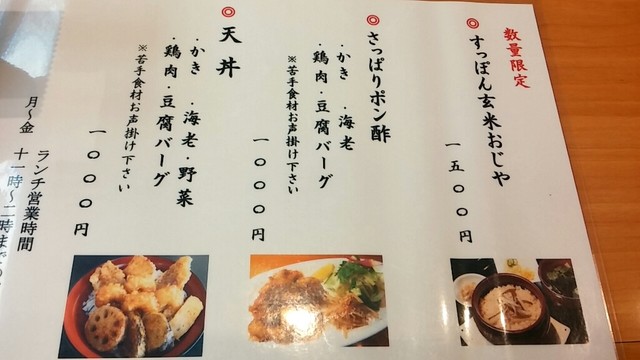 数量限定
◎すっぽん玄米おじや
一五〇〇円
◎さっぱりポン酢
・かき ・海老
・鶏肉・豆腐バーグ
※苦手食材お声掛け下さい
一〇〇〇円
◎天丼
・かき ・海老・野菜
・鶏肉・豆腐バーグ
※苦手食材お声掛け下さい
一〇〇〇円
ランチ営業時間
月〜金 十一時〜二時まで